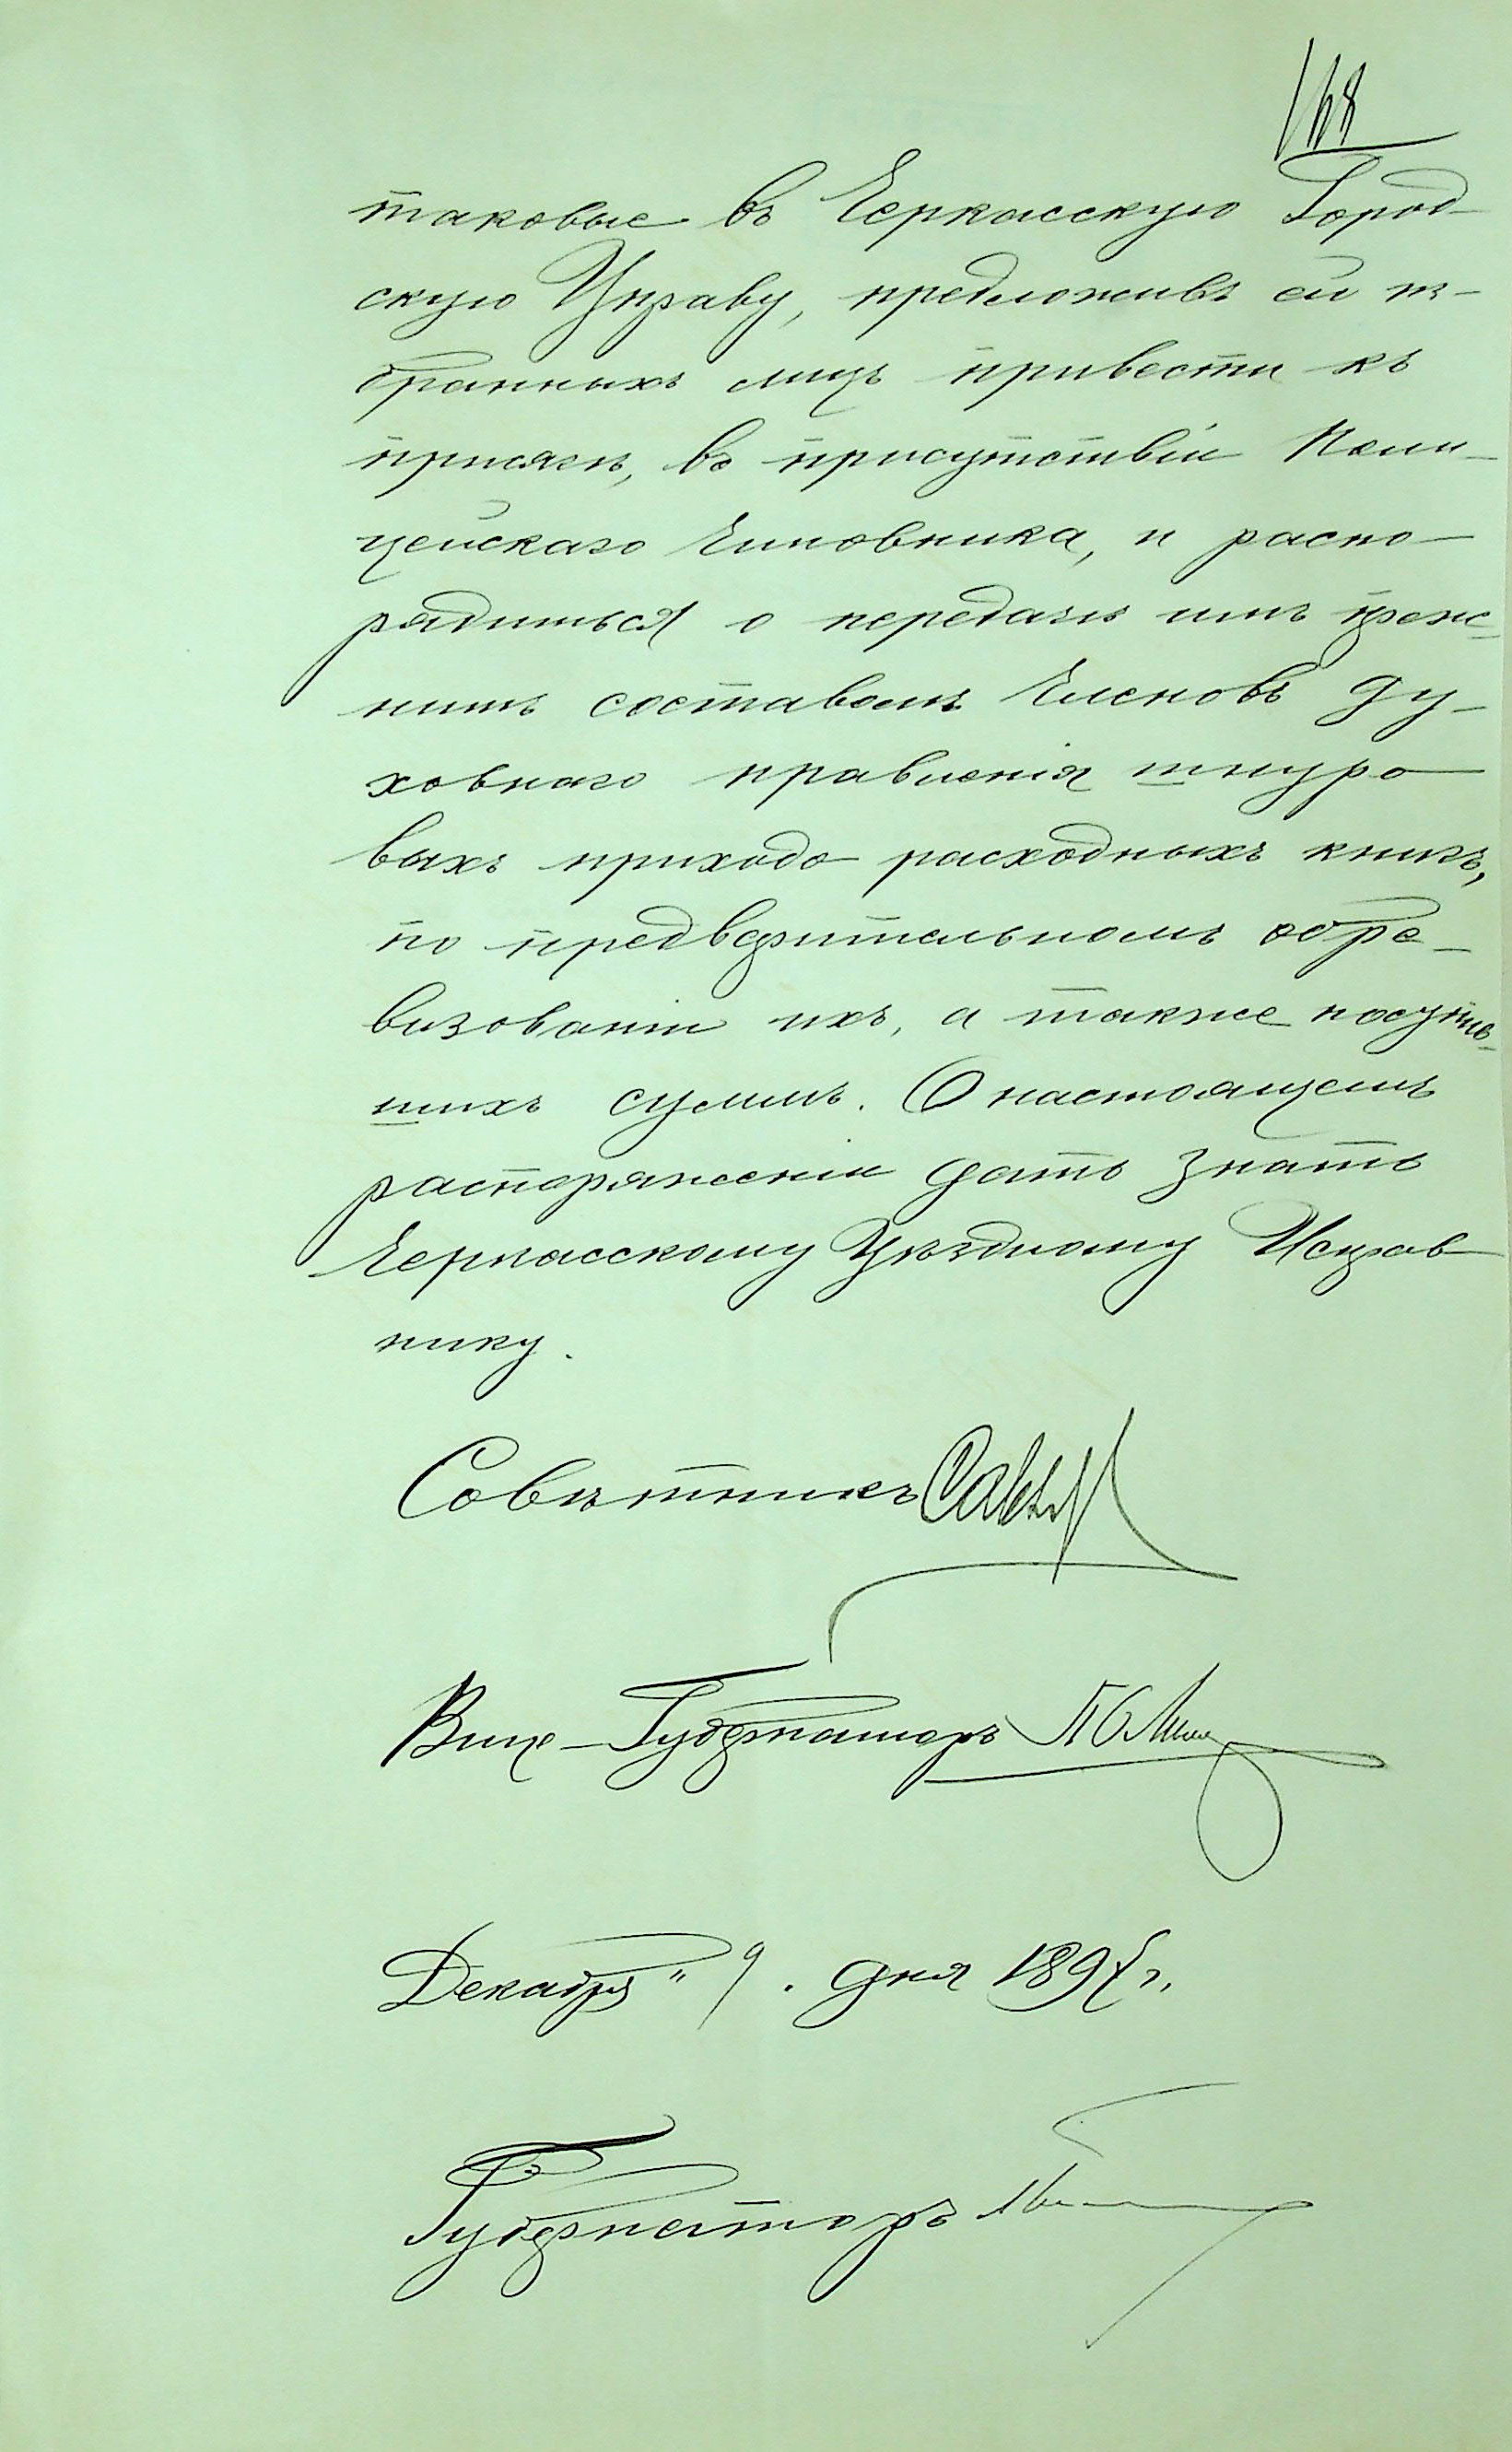 168
таковые въ Черкасскую Город-
скую Управу, предложивъ ей из-
бранныхъ лицъ привести къ
присягѣ, въ присутствіи Поли-
цейскаго Чиновника, и распо-
рядиться о передачѣ имъ преж-
нимъ составомъ Членовъ Ду-
ховнаго правленія шнуро-
выхъ приходо-расходныхъ книгъ,
по предварительномъ обре-
визованіи ихъ, а также поступив-
шихъ суммъ. О настоящемъ
распоряженіи дать знать
Черкасскому Уѣздному Исправ-
нику.
Совѣтникъ
Вице-Губернаторъ
Декабря "9. дня 189 г.
Губернаторъ